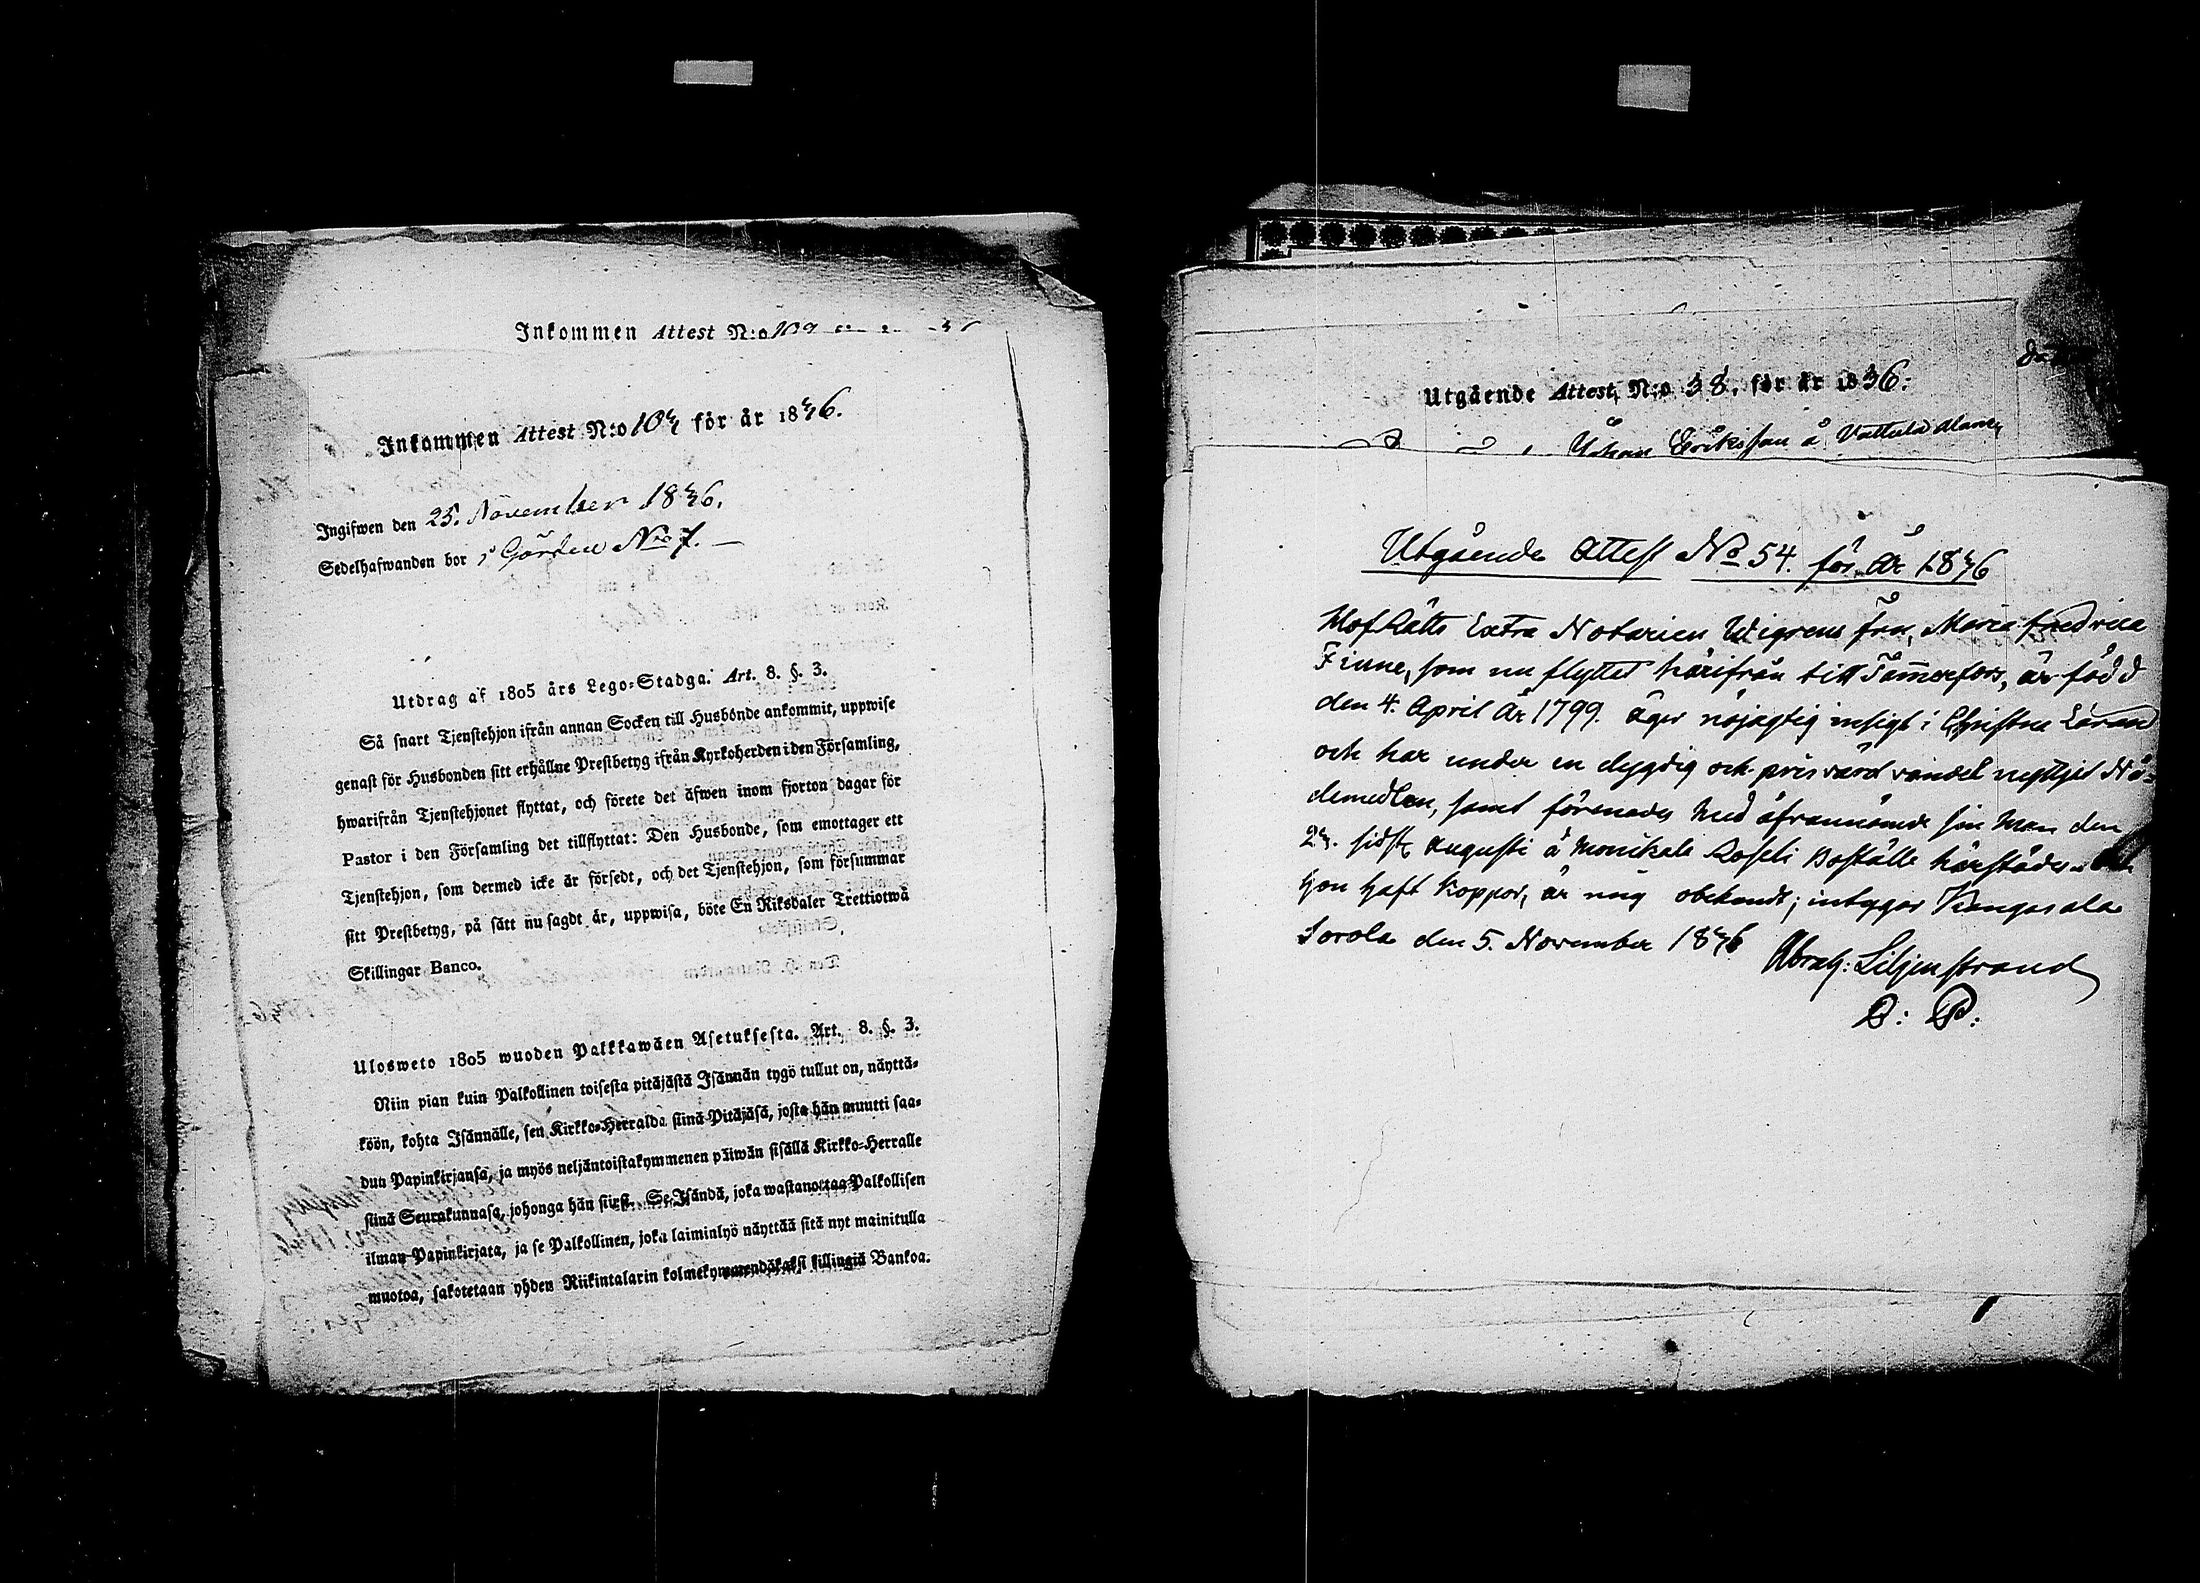 Inkommen Attest N:o 109
Inkommen Attest N:o 104 för år 1846.
Ingifwen den 25. November 1846.
Sedelhafwanden bor i Gården No 7.
Utdrag af 1805 års Lego-Stadga. Art. 8. §. 3.
Så snart Tjenstehjon ifrån annan Socken till Husbonde ankommit, uppwise
genast för Husbonden sitt erhållne Prestbetyg ifrån Kyrkoherden i den Församling,
hwarifrån Tjenstehjonet flyttat, och förete det äfwen inom fjorton dagar för
Pastor i den Församling det tillflyttat: Den Husbonde, som emottager ett
Tjenstehjon, som dermed icke är försedt, och det Tjenstehjon, som försummar
sitt Prestbetyg, på sätt nu sagdt är, uppwisa, böte En Riksdaler Trettiotwå
Skillingar Banco.
Ulosweto 1805 wuoden Palkkawäen Asetuksesta. Art. 8. §. 3.
Niin pian kuin Palkollinen toisesta pitäjästä Isännän tygö tullut on, näyttä-
köön, kohta Isännälle, sen Kirkko-Herralda siinä Pitäjäsä, josta hän muutti saa-
dun Papinkirjansa, ja myös neljäntoistakymmenen päiwän sisällä Kirkko-Herralle
siinä Seurakunnasa, johonga hän siirsi. Se Isändä, joka wastanottaa Palkollisen
ilman Papinkirjata, ja se Palkollinen, joka laiminlyö näyttää sitä nyt mainitulla
muotoa, sakotetaan yhden Riikintalarin kolmekymmendäkaksi killingiä Bankoa.
Utgående Attest, N:o 38. för år 1836.
Johan Eriksson å Vattula
Utgående Attest No 54. för År 1846
HofRätts Extra Notarien Wigrens fru, Maria Fredrica
Finne, som nu flyttat härifrån till Tammerfors, är född
den 4. April År 1799. äger nöjagtig insigt i Christna Läran
och har under en dygdig och prisvärd vandel nyttjat Nå-
demedlen, samt förenades med åfvannämde sin Man den
24. sidstl. Augusti å Monikala Boställe härstädes. Om
hon haft Koppor, är mig obekandt; intygar Kangasala
Sorola den 5. November 1846
Abrah: Liljenstrand